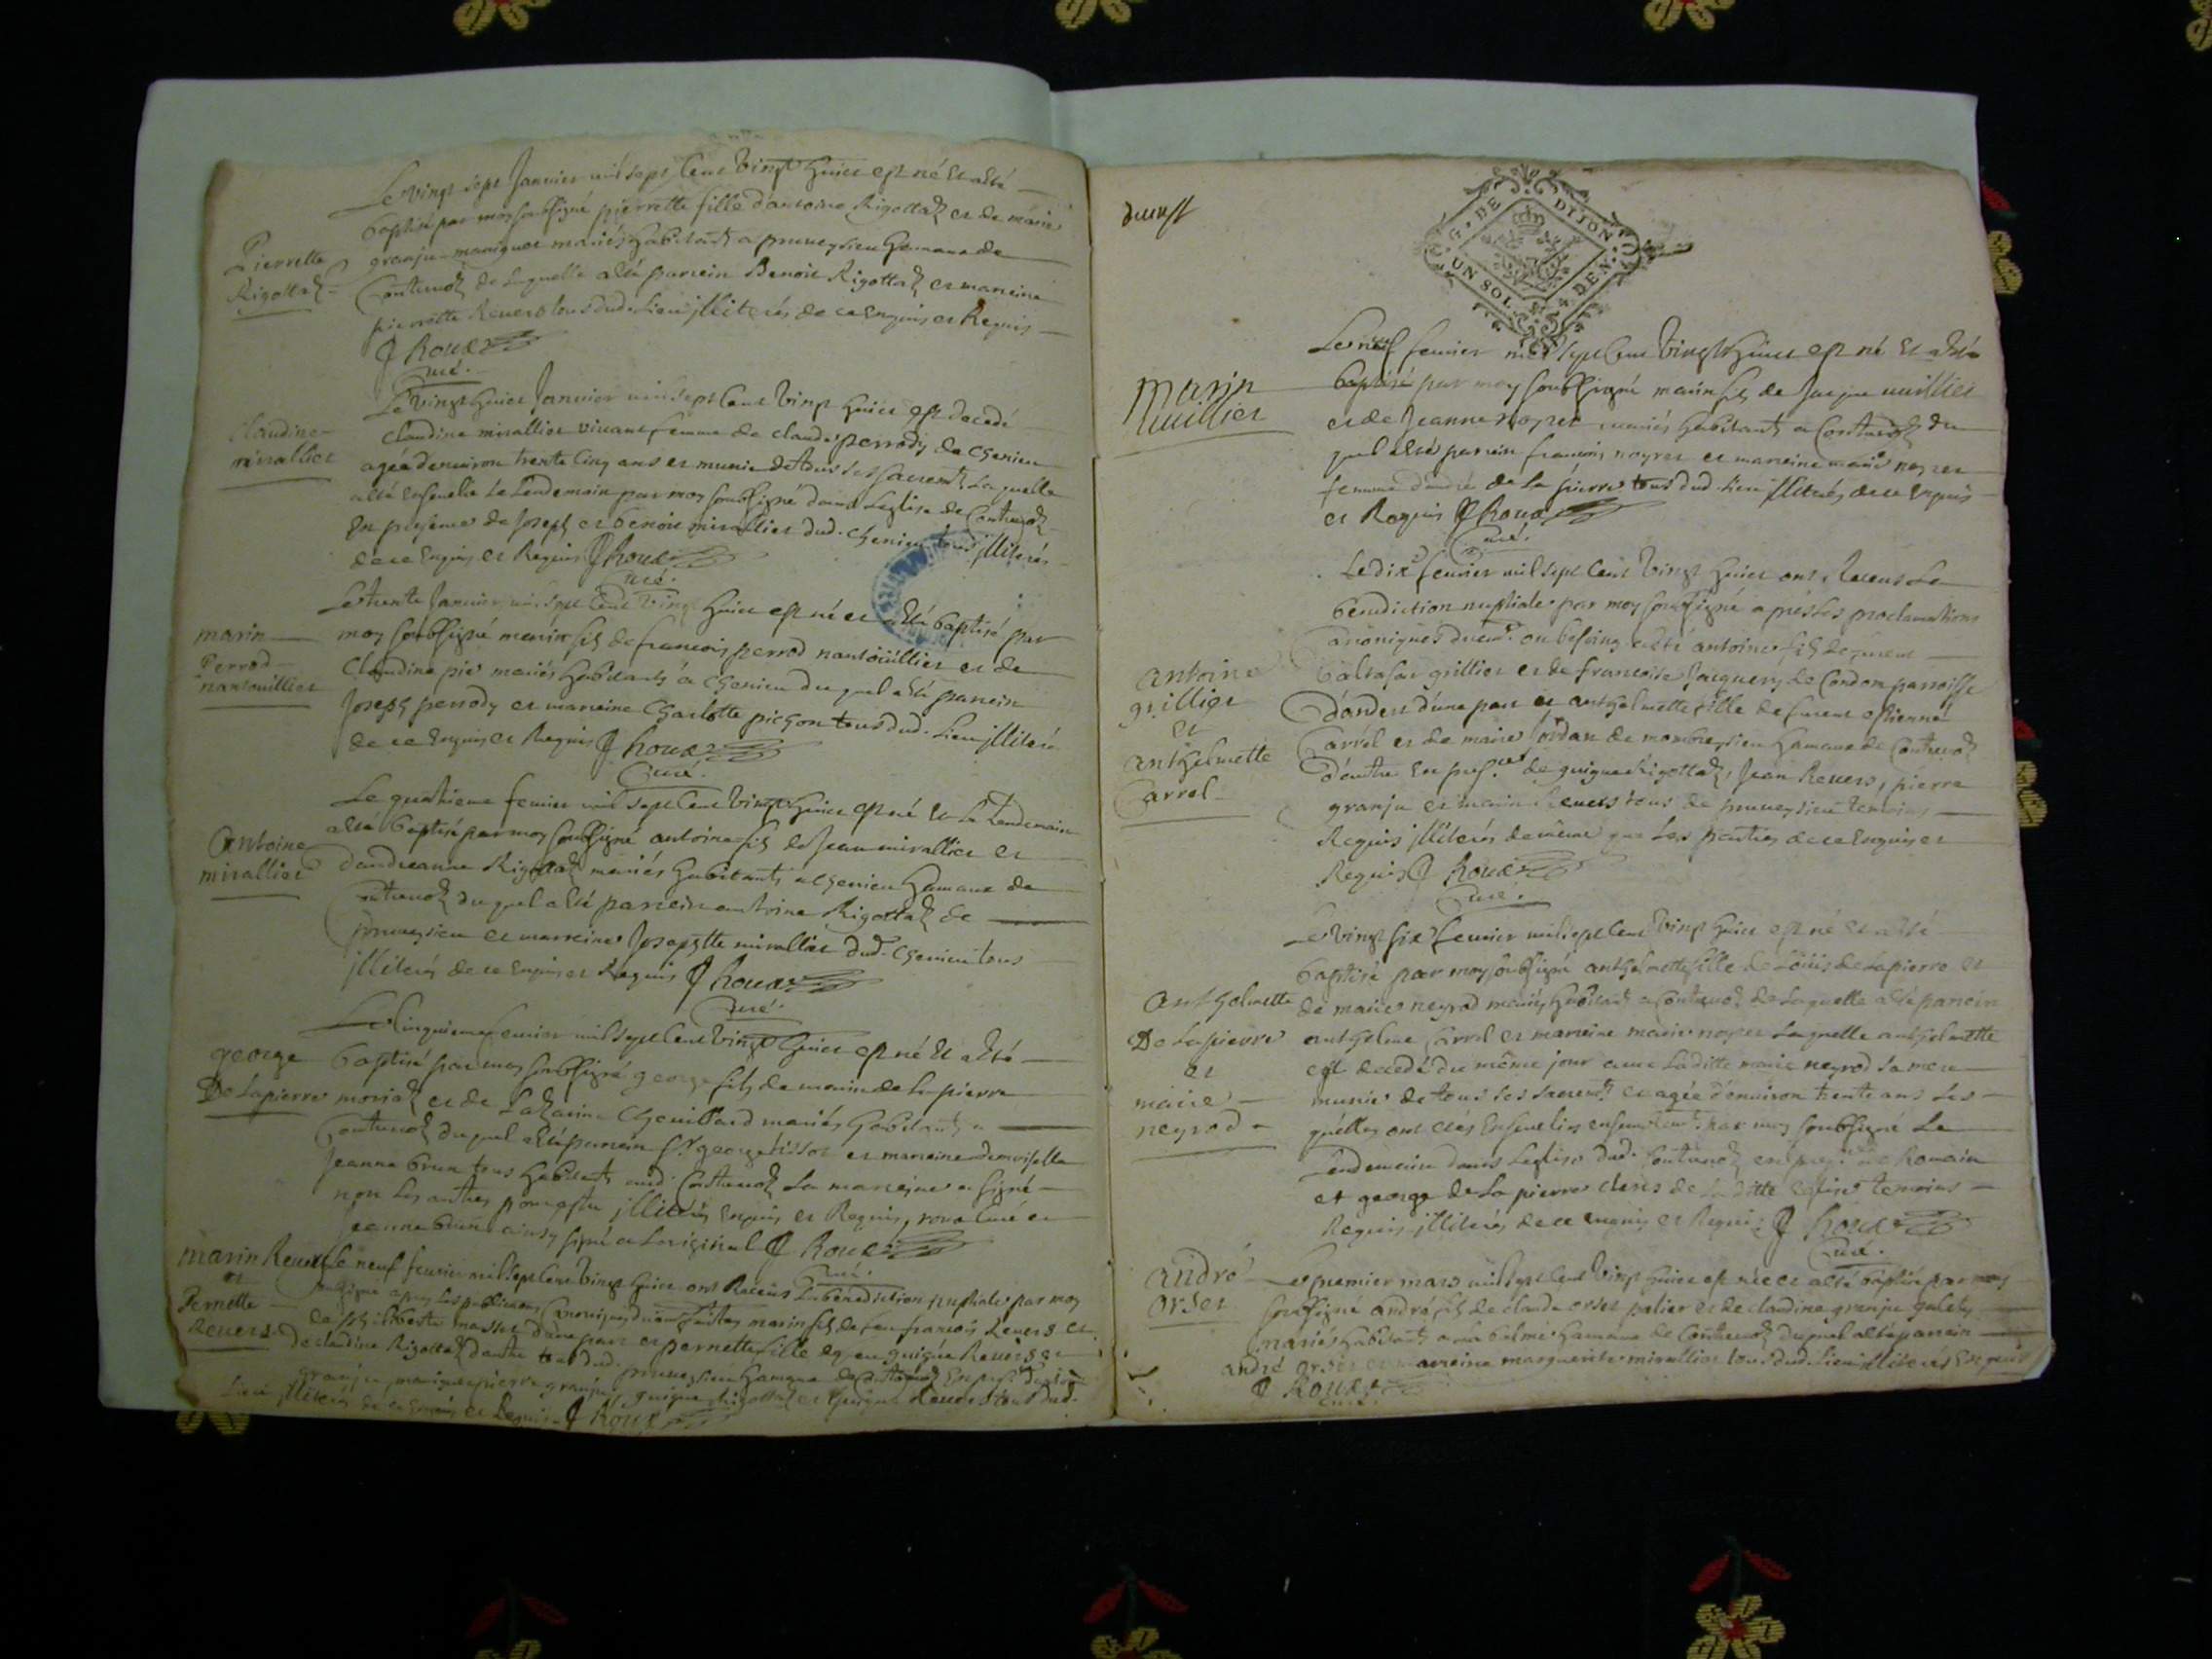 Le vingt sept Janvier mil sept cent vingt huict est né et a été
baptisé par moy soussigné pierrette fille d'antoine Rigottaz et de marie
Pierrette
Rigottaz
granju maniguet mariés habitants a pruveysieu hamaux de
Contrevoz de laquelle a été parrein Benoit Rigottaz et marreine
pierrette Revers tous dud. Lieu jlliterés de ce Enquis et Requis
J Roux
Curé.
Claudine
mirallier
Le vingt huict Janvier mil sept cent vingt huict est decedé
Claudine mirallier vivant femme de claude perrody de chenieu
agée d'environ trente Cinq ans et munie de tous ses sacremts. Laquelle
a été Ensevelie Le Lendemain par moy soussigné dans L'eglise de Contrevoz
En presence de Joseph et benoit mirallier dud. chenieu tous jlliterés
de ce Enquis et Requis J Roux
Curé.
marin
Perrod
nantouillier
Le trente Janvier mil sept cent vingt huict est né et a été baptisé par
moy soussigné marin fils de francois perrod nantoüillier et de
Claudine pie mariés habitants a chenieu du quel a été parrein
Joseph perrody et marreine Charlotte pichon tous dud. Lieu jlliterés
de ce Enquis et Requis J Roux
Curé.
Antoine
mirallier
Le quatrieme fevrier mil sept cent vingt huict est né et Le Lendemain
a été baptisé par moy soussigné antoine fils de Jean mirallier et
d'andreanne Rigottaz mariés habitants a chenieu hamaux de
Contrevoz du quel a été parrein antoine Rigottaz de
pruveysieu et marreine Josephtte mirallier dud. chenieu tous
jlliterés de ce Enquis et Requis J Roux
Curé.
george
De Lapierre
Le Cinquieme fevrier mil sept cent vingt huict est né et a été
baptisé par moy soussigné george fils de marin de La pierre
moriaz et de Lazarine Chevillard mariés habitants a
Contrevoz duquel a été parrein Sr. george tissot et marreine demoiselle
Jeanne brun tous habitants aud. Contrevoz La marreine a signé
non Les autres pour estre jlliterés Enquis et Requis, roux Curé et
jeanne brun ainsy signé a Loriginal J Roux
Curé.
marin Revers
et
Pernette
Revers
Le neuf fevrier mil sept cent vingt huict ont Receus La benediction nuptiale par moy
marin fils de feu francois Revers et
d'une part et pernette fille de feu guigue Revers et
de claudine Rigottaz d'autre tous dud. pruveysieu hamaux de Contrevoz
Lieu jlliterés de ce Enquis et Requis J Roux
Le neuf fevrier mil sept cent vingt huict est né et a été
marin
vuillier
baptisé par moy soussigné marin fils de Jaque vuillier
et de Jeanne noyret mariés habitants a Contrevoz du
quel a été parrein francois noyret et marreine marie noyret
femme d'andré de La pierre tous dud. Lieu jlliterés de ce Enquis
et Requis J Roux
Curé.
Le dixe fevrier mil sept cent vingt huict ont Receus La
benediction nuptiale par moy soussigné a pres Les proclamations
antoine
grillier
et
anthelmette
Carrel
antoine fils de feu
baltasar grillier et de francoise Jacquery de Condon parroisse
d'andert d'une part et anthelmette fille de feu estienne
Carrel et de marie Jordan de mombreysieu hamaux de Contrevoz
d'autre En presce. de guigue Rigottaz, Jean Revers, pierre
granju et marin Revers tous de pruveysieu temoins
Requis jlliterés de même que Les parties de ce Enquis et
Requis J Roux
Curé.
Le vingt six fevrier mil sept cent vingt huict est né et a été
baptisé par moy soussigné anthelmette fille de Loüis de Lapierre et
Anthelmette
De Lapierre
et
marie
neyrod
de marie neyrod mariés habitants a Contrevoz de Laquelle a été parrein
anthelme Carrel et marreine marie noyret Laquelle anthelmette
est decedé du même jour avec Laditte marie neyrod sa mere
munie de tous ses sacremts. et agée d'environ trente ans Les
quelles ont étés Ensevelies ensemblemt. par moy soussigné Le
Lendemain dans L'eglise dud. Contrevoz en presce. de Romain
et george de La pierre clercs de Laditte eglise temoins
Requis jlliterés de ce enquis et Requis J Roux
Curé.
andré
orset
Le premier mars mil sept cent vingt huict est né et a été baptisé par moy
soussigné andré fils de claude orset palier et de claudine granju
mariés habitants a La balme hamaux de Contrevoz duquel a été parrein
andré orset et marreine marguerite mirallier tous dud. Lieu jlliterés Enquis
J Roux
Curé.
G. DE DIJON
UN SOL DEN.